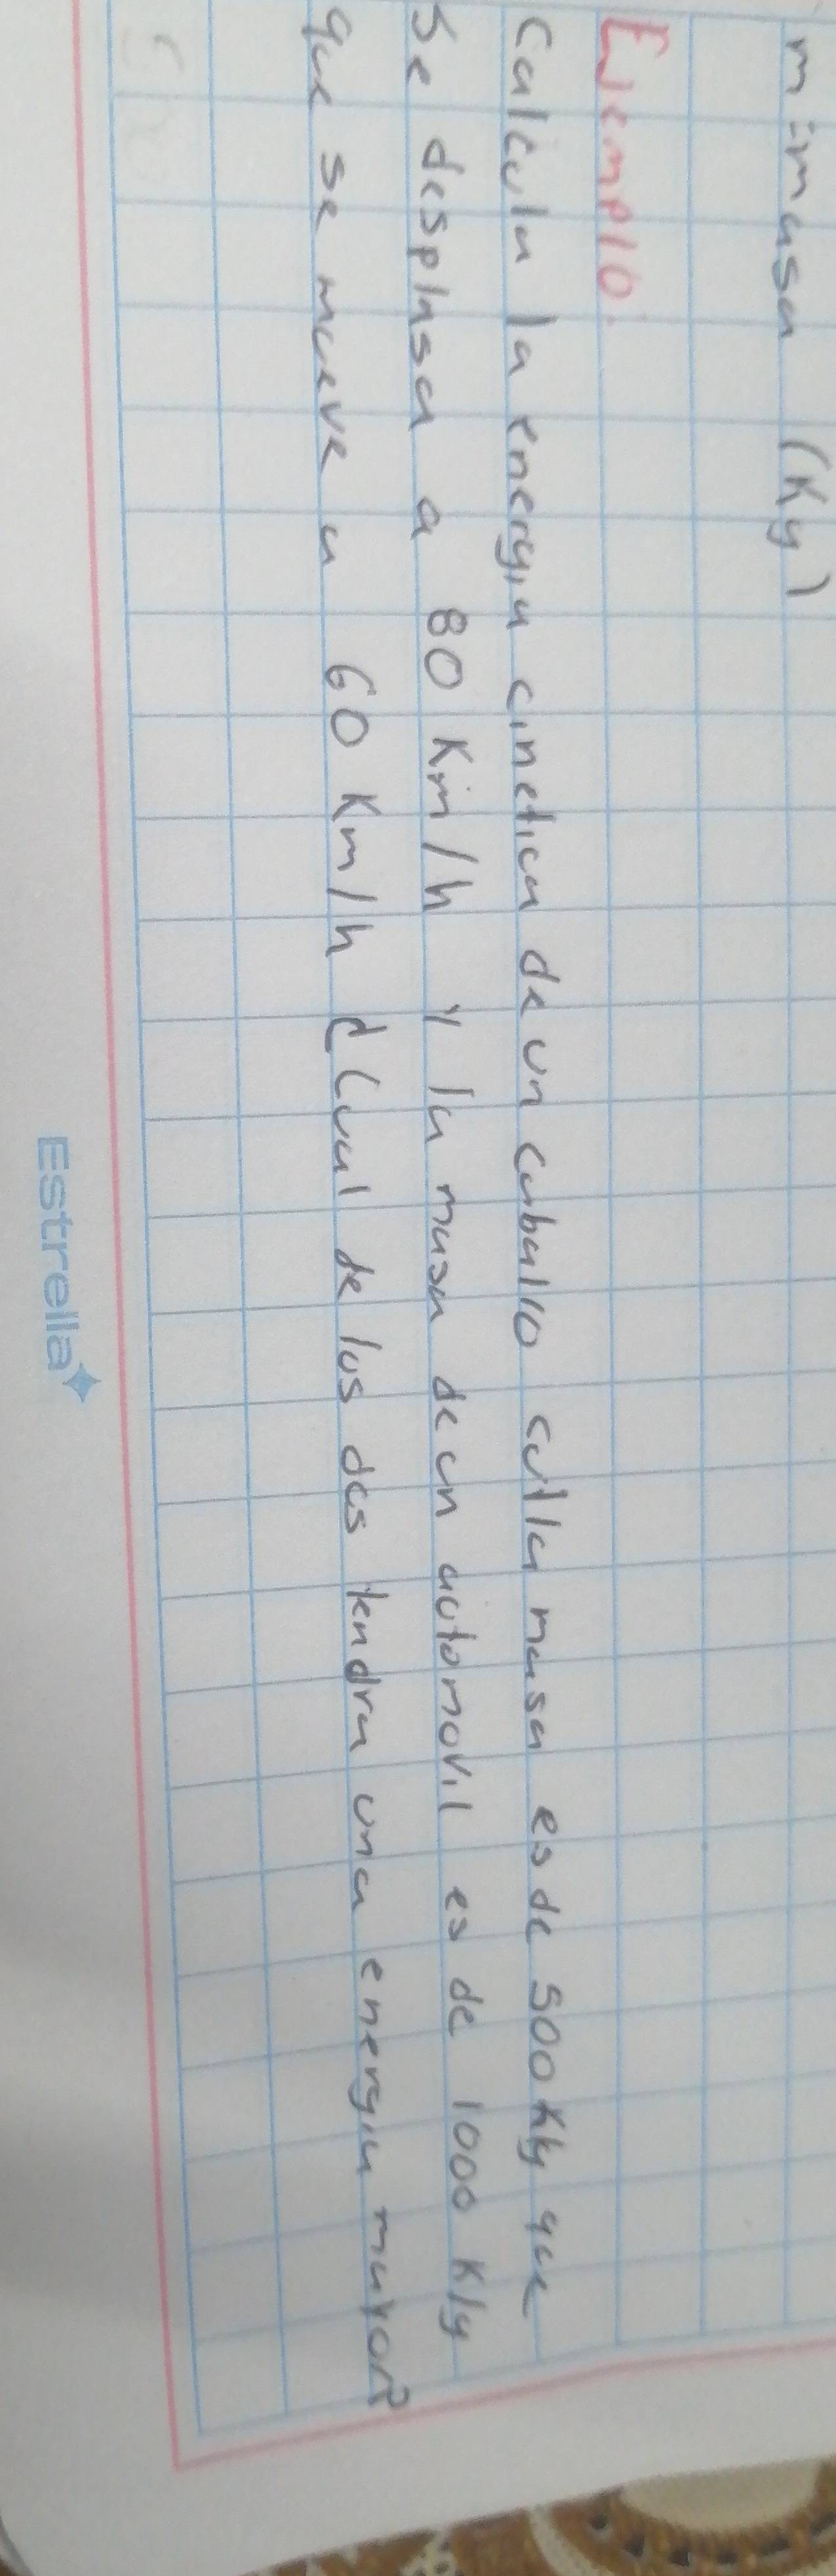 m=masa (Kg)
Ejemplo:
Calcula la energia cinetica de un caballo culla masa es de 500 Kg que
se desplasa a 80 Km/h y la masa de un automovil es de 1000 Kg
que se mueve a 60 Km/h ¿Cual de los dos tendra una energia mayor?
Estrella